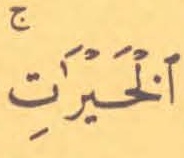 ٱلْخَيْرَٰتِۚ